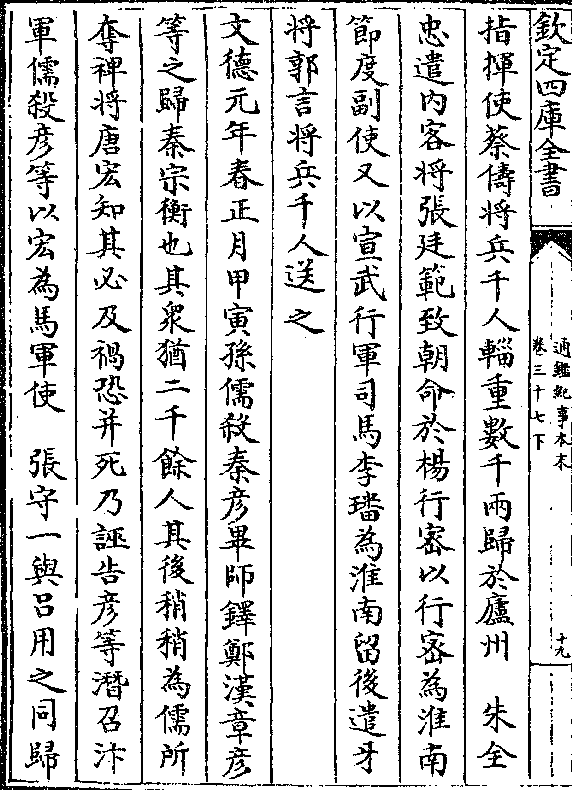 欽定四庫全書
通鑑紀事本末
卷三十七下
十九
指揮使蔡儔將兵千人輜重數千兩歸於廬州　朱全
忠遣内客將張廷範致朝命於楊行密以行密為淮南
節度副使又以宣武行軍司馬李璠為淮南留後遣牙
将郭言将兵千人送之
文德元年春正月甲寅孫儒殺秦彦畢師鐸鄭漢章彦
等之歸秦宗衡也其衆猶二千餘人其後稍稍為儒所
奪裨将唐宏知其必及禍恐并死乃誣告彦等潛召汴
軍儒殺彦等以宏為馬軍使　張守一與吕用之同歸